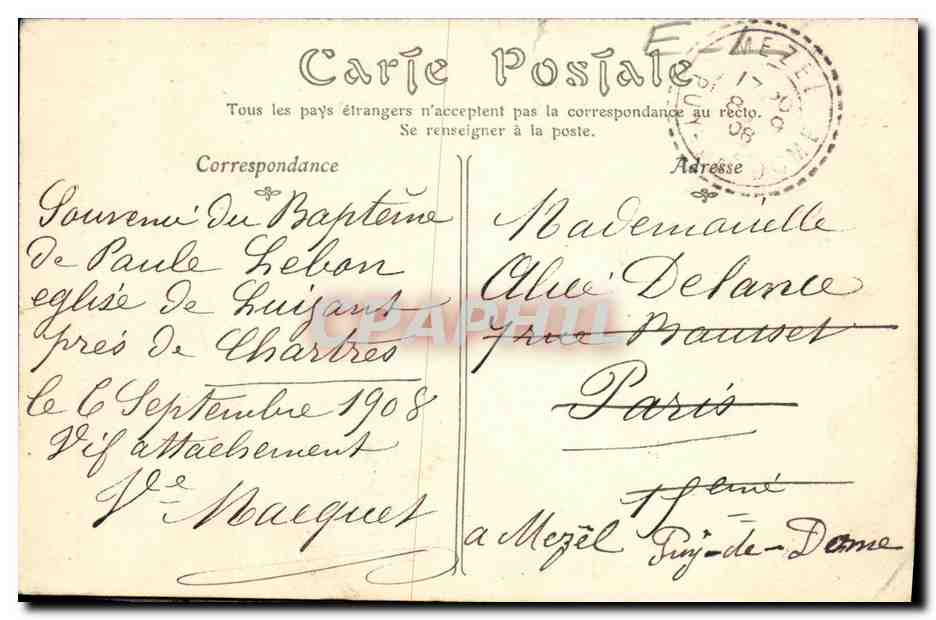 E-L
Carte Postale
Tous les pays étrangers n'acceptent pas la correspondance au recto.
Se renseigner à la poste.
Correspondance
Souvenir du Baptême
de Paule Lebon
eglise de Luisant
près de Chartres
le 6 Septembre 1908
Vif attachement
Vve Macquet
Adresse
Mademoiselle
Alice Delance
7 rue Bausset
Paris
15eme
a Mezel Puy-de-Dome
MEZEL
PUY-DE-DOME
CPAPHIL